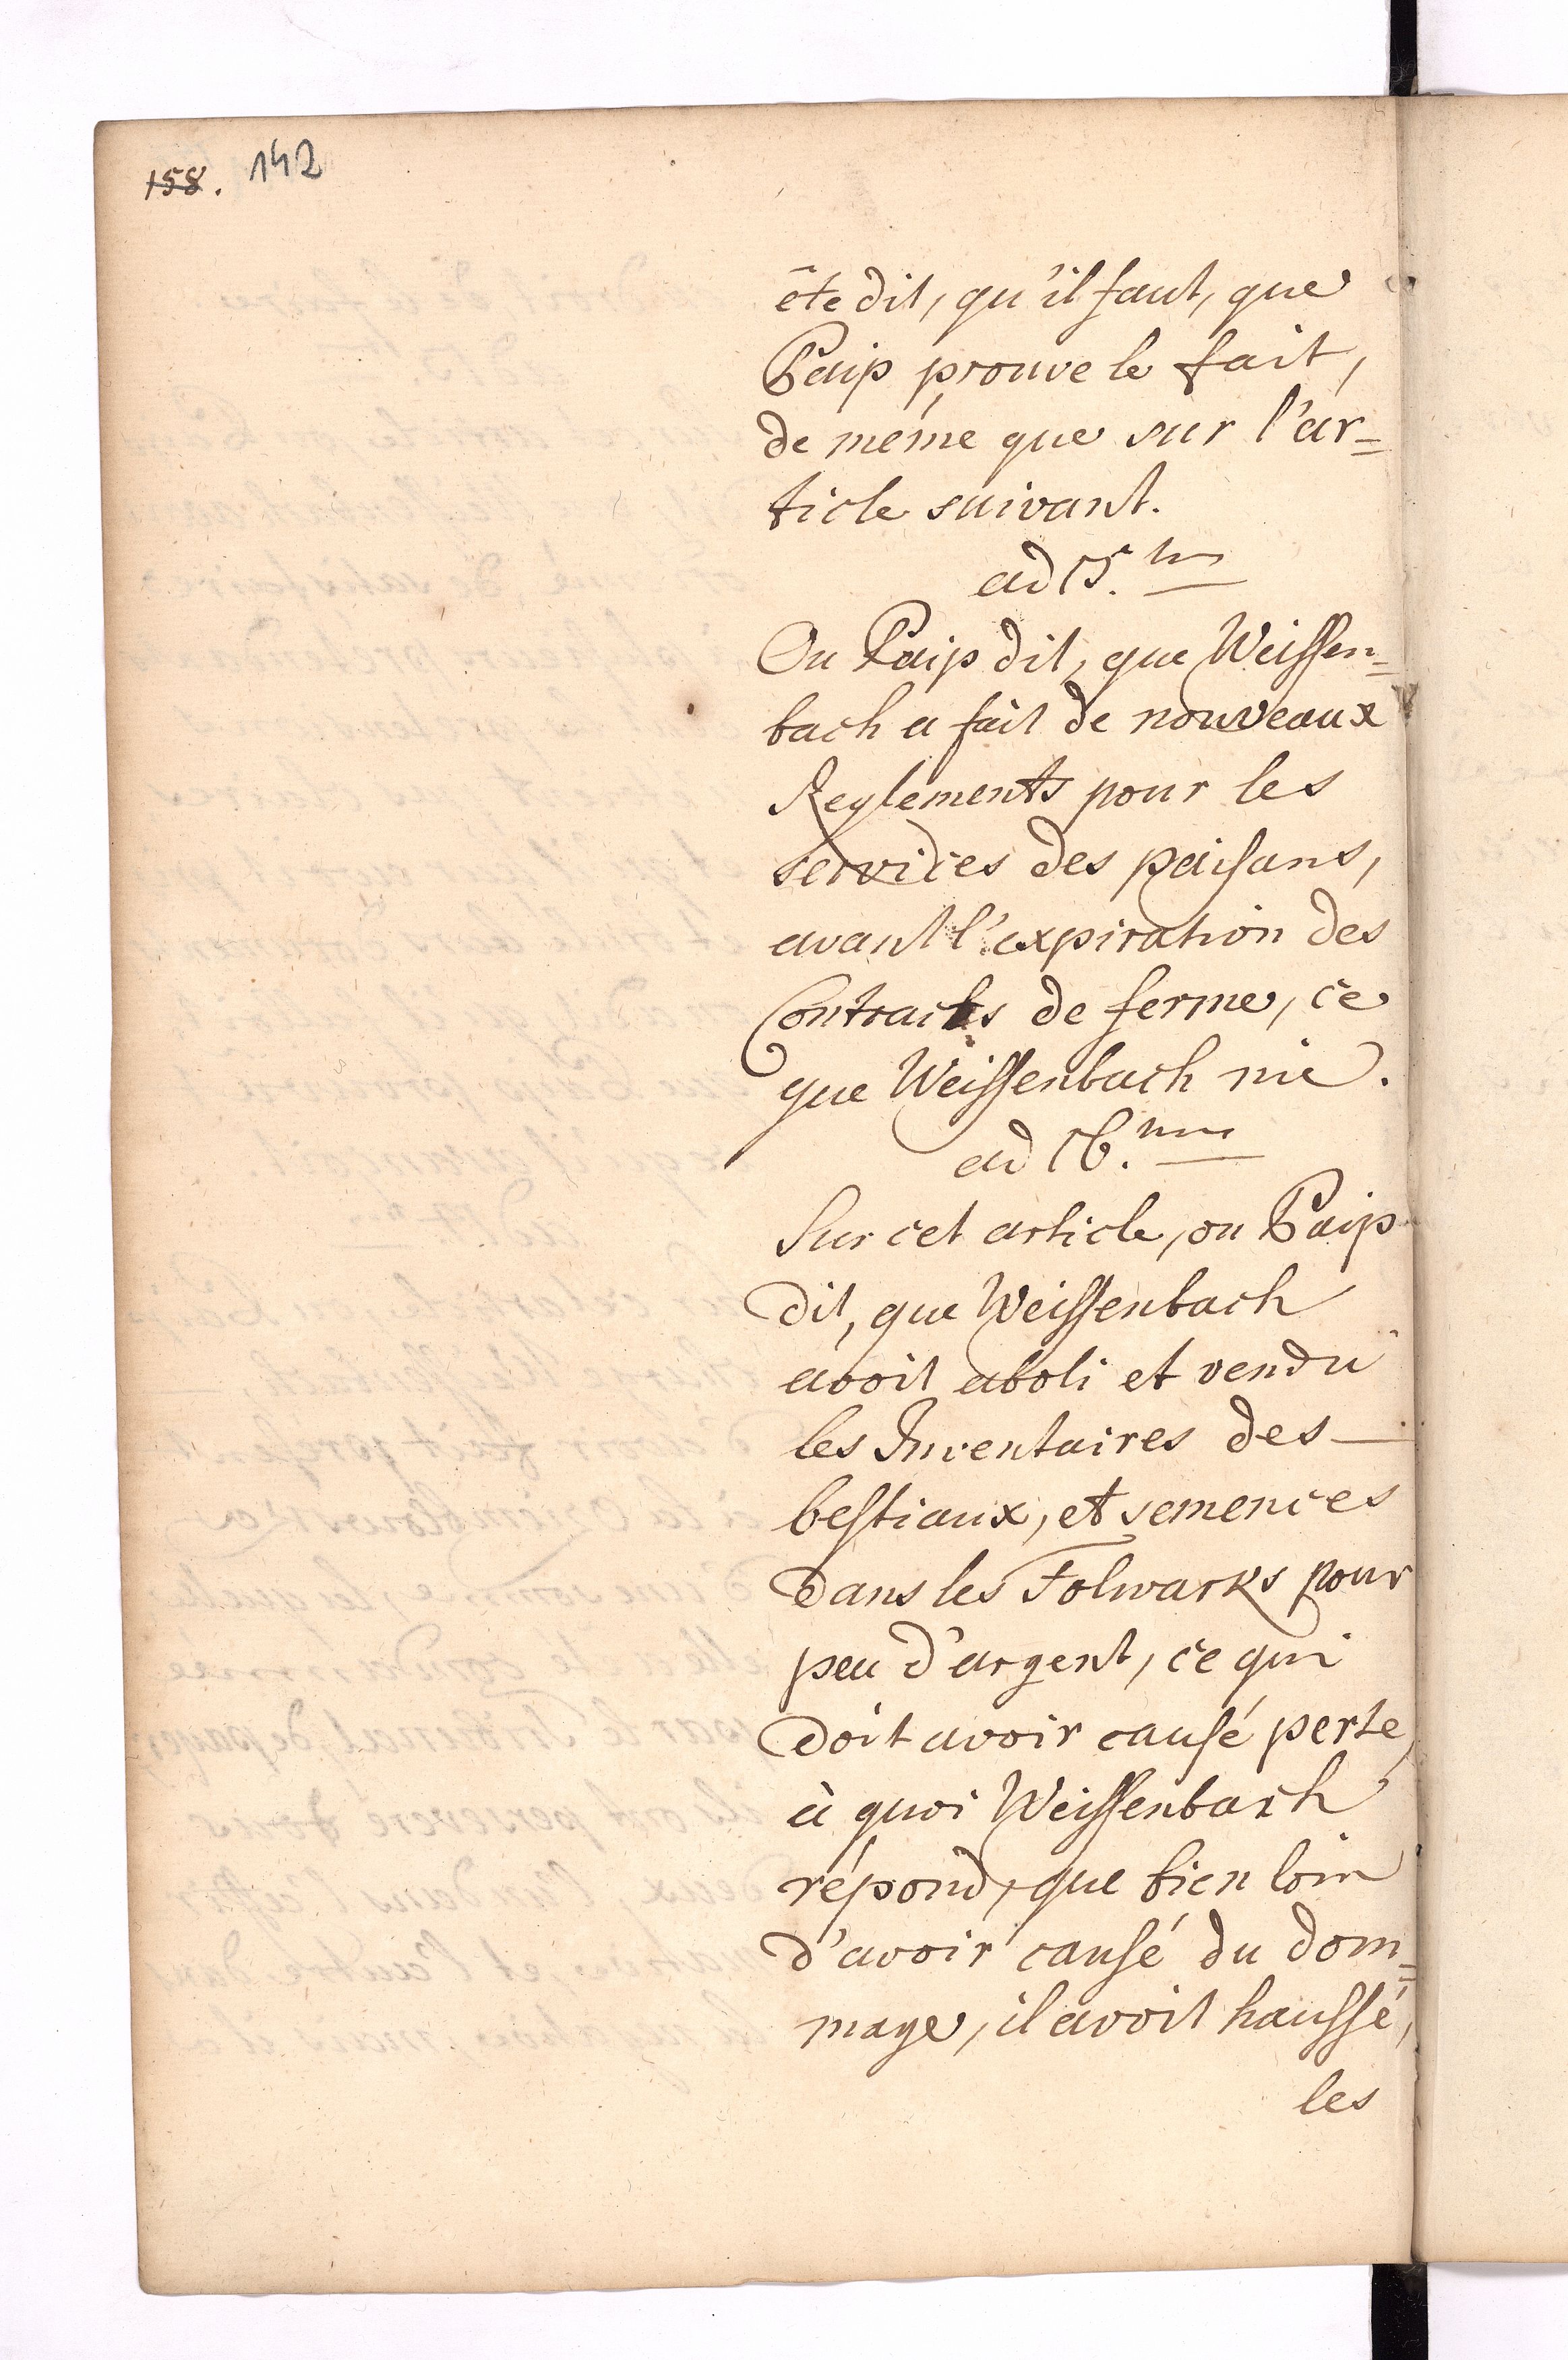 158. 142
éte dit, qu'il faut, que
Paip prouve le fait,
de méme que sur l'ar=
ticle suivant.
ad 15.tm
Ou Paip dit, que Weissen=
bach a fait de nouveaux
Reglements pour les
services des paisans,
avant l'expiration des
Contracts de ferme, ce
que Weissenbach nie.
ad 16.tum
Sur cet article, ou Paip
dit, que Weissenbach
avoit aboli et vendu
les Inventaires des
bestiaux, et semences
dans les Folwarks pour
peu d'argent, ce qui
doit avoir causé perte,
à quoi Weissenbach
répond, que bien loin
d'avoir causé du dom=
mage, il avoit haussé,
les